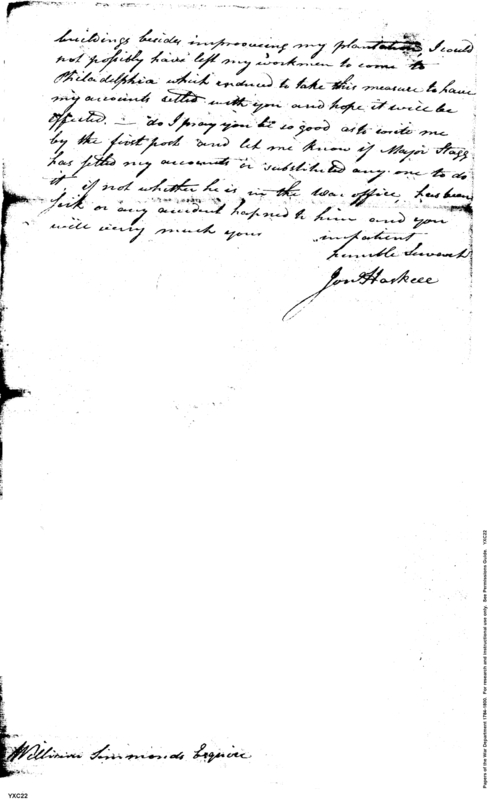 buildings besides improoving my plantation, I could
not possibly have left my workmen to come to
Philadelphia which enduced to take this measure to have
my accounts setled with you and hope it will be
effected. — do I pray you be so good as to write me
by the first post and let me know if Major Stagg
has setled my accounts or substituted any one to do
it, if not whether he is in the war office, has been
sick or any accident hapned to him and you
will very much yours
impatient
humble Servant
Jona Haskell
William Simmonds Esquire
YXC22
Papers of the War Department 1784-1800. For research and instructional use only. See Permissions Guide. YXC22